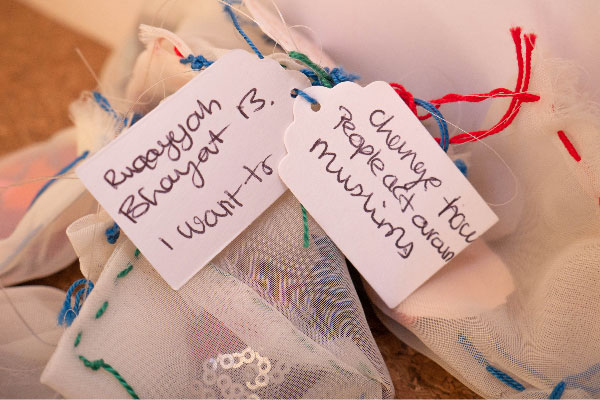 Ruqayyah
Bhayat 13.
I want to
change how
People act aroun
muslims